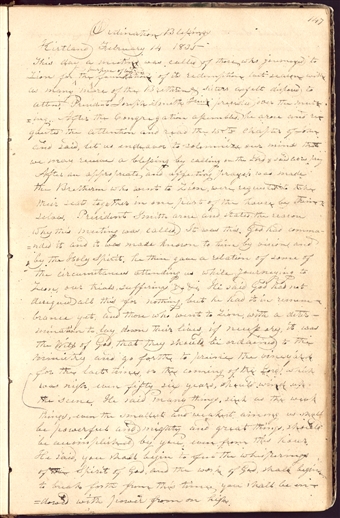 147
Ordination Blessings
Kirtland February 14 1835
This day a meeting was called of those who journeyed to
Zion for the purpose of laying the foundation of its redemption last season with
as many more of the Brethren & sisters as felt disposed to
attend. President Joseph Smith presided over the meet-
ing. After the Congregation assembled, he arose and re-
quested the attention and read the 15th Chapter of John
and said, let us endeavor to solemnize our minds that
we may receive a blessing by calling on the Lord
After an appropriate and affecting prayer was made
the Brethren who went to Zion, were requested to take
their seats together in one part of the house by them-
selves. President Smith arose and stated the reason
why this meeting was called. It was this, God had comma-
nded it and it was made known to him by vision and
by the Holy Spirit, he then gave a relation of some of
the circumstances attending us while journeying to
Zion, our trials, sufferings &c &c. He said God had not
designed all this for nothing, but he has it in remem-
brance yet, and those who went to Zion, with a deter-
mination to lay down their lives, if necessary, it was
the Will of God, that they should be ordained to the
ministry and go forth to prune the vineyard
for the last time, or the coming of the Lord, which
was nigh, even fifty six years, should wind up
the scene. He said many things, such as the weak
things, even the smallest and weakest among us, shall
be powerful and mighty and great things should
be accomplished by you, even from this hour
He said, you shall begin to feel the whisperings
of the Spirit of God, and the work of God shall begin
to break forth from this time, you shall be en-
dowed with power from on high.